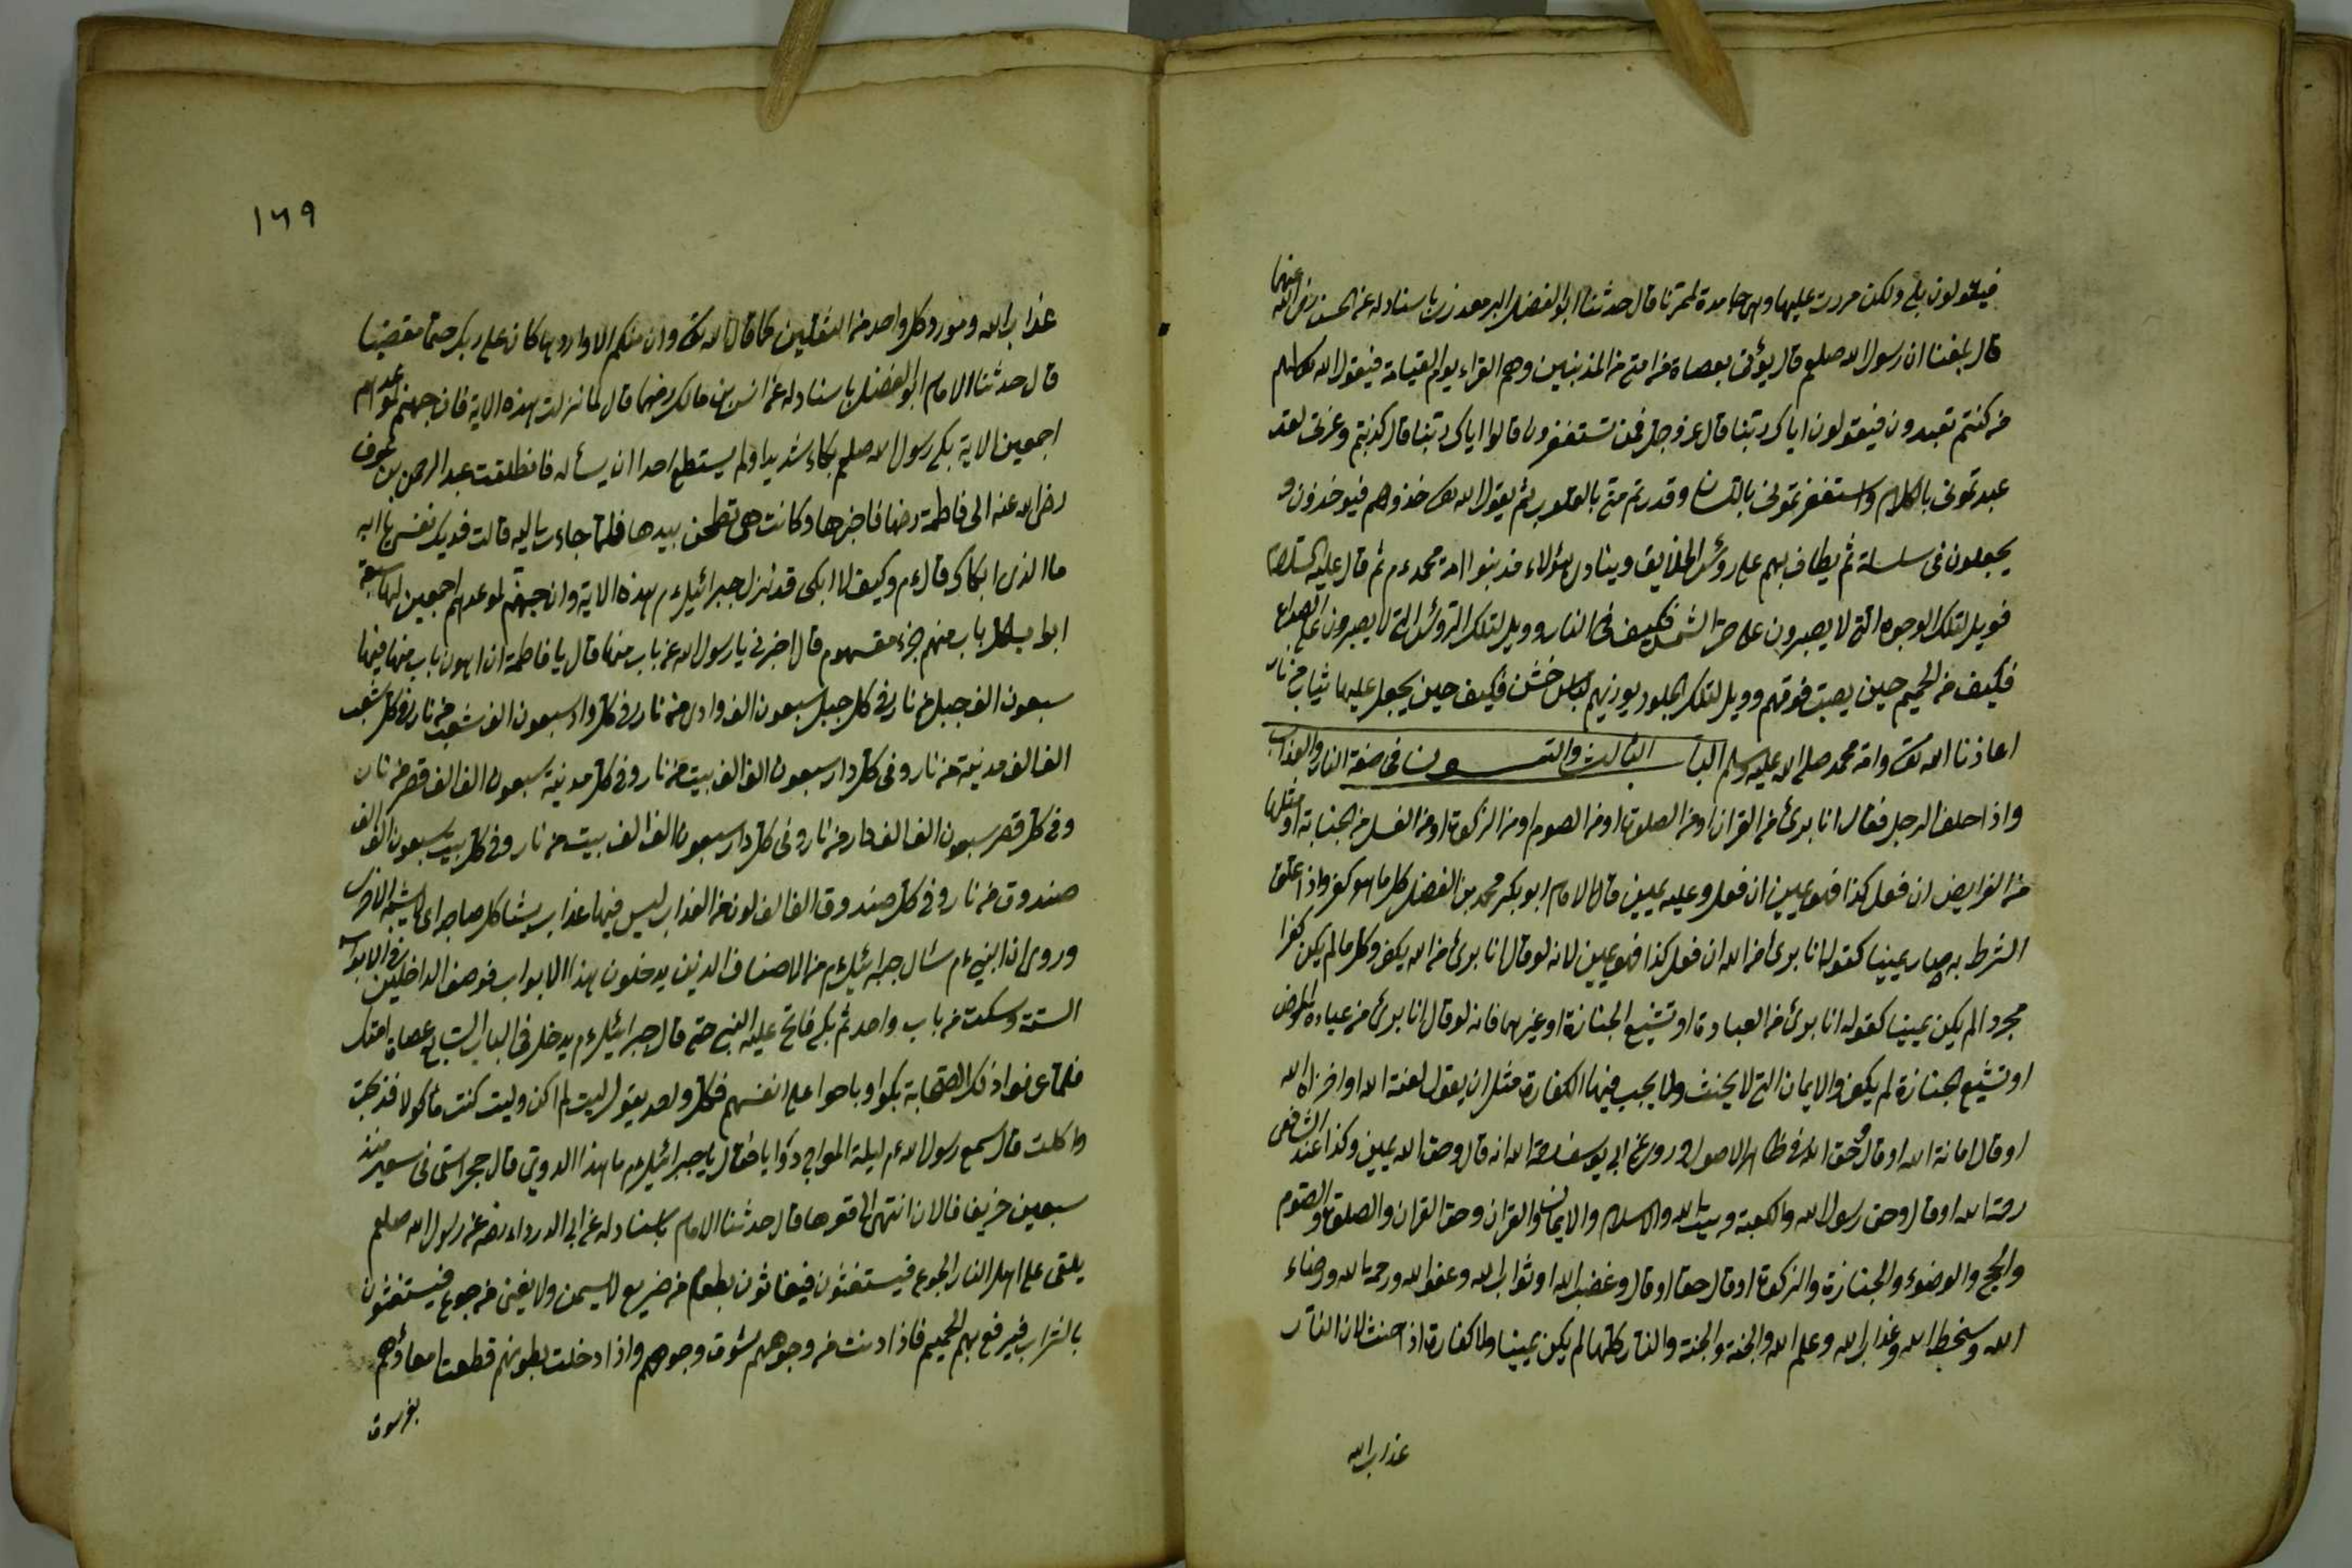 فيقولون بلى ولكن مررت عليها وهى جامدة قال حدثنا ابو الفضل باسناده عن الحسن رضى الله عنهما
قال بلغنا ان رسول الله صلعم قال يؤتى بعصاة من امتى من المذنبين وهم القراء يوم القيامة فيقول الله تعالى لهم
من كنتم تعبدون فيقولون اياك ربنا قال عز وجل فمن تستغفرون قالوا اياك ربنا قال كذبتم وعزتى لقد
عبدتمونى بالكلام واستغفرتمونى باللسان وقد رتم منى بالقلوب ثم يقول الله تعالى خذوهم فيوخذون و
يجعلون فى سلسلة ثم يطاف بهم على رؤس الخلايق وينادى هؤلاء مذنبوا امة محمد عم ثم قال عليه السلام
فويل لتلك الوجوه التى لا يصبرون على حر الشمس فكيف فى النار وويل لتلك الرؤس التى لا يصبرون على الصداع
فكيف من الحميم حين يصب فوقهم وويل لتلك الجلود يوذيهم لباس خشن فكيف حين يجعل عليها ثياب من نار
اعاذنا الله تعالى وامة محمد صلى الله عليه وسلم الباب الثالث والتسعون فى صفة النار والعذاب
واذا حلف الرجل فقال انا برئ من القران او من الصلوة او من الصوم او من الزكوة او من الغسل من الجنابة او مثلها
من الفرايض ان فعل كذا فهو يمين ان فعل وعليه يمين قال الامام ابو بكر محمد بن الفضل كل ما هو كفر واذا علق
الشرط به صار يمينا كقوله انا برئ من الله ان فعل كذا فهو يمين لانه لو قال انا برئ من الله يكفر وكل ما لم يكن كفرا
مجردا لم يكن يمينا كقوله انا برئ من العيادة او تشييع الجنازة او غيرهما فانه لو قال انا برئ من عيادة المريض
او تشييع الجنازة لم يكفر والايمان التى لا يحنث ولا يجب فيها الكفارة مثل ان يقول لعنة الله او اخزاه الله
او قال امانة الله او قال وحق الله فى ظاهر الاصول وروى عن ابى يوسف رحمة الله انه قال وحق الله يمين وكذا عند الشافعى
رحمة الله او قال وحق رسول الله والكعبة وبيت الله والاسلام والايمان والقران وحق القران والصلوة والصوم
والحج والوضوء والجنازة والزكوة او قال حقا او قال وغضب الله او ثواب الله وعفو الله ورحمة الله ورضاء
الله وسخط الله وعذاب الله وعلم الله والجنة والجنة والنار كلها لم يكن يمينا ولا كفارة اذا حنث لان النار
عذاب الله
١٦٩
عذاب الله ومورد كل واحد من الثقلين كما قال الله تعالى وان منكم الا واردها كان على ربك حتما مقضيا
قال حدثنا الامام ابو الفضل باسناده عن انس بن مالك رضهما قال لما نزلت هذه الاية فان جهنم لموعدهم
اجمعين الاية بكى رسول الله صلعم بكاء شديدا ولم يستطع احدا ان يسأله فانطلقت عبد الرحمن بن عوف
رضى الله عنه الى فاطمة رضها فاخبرها وكانت هى تطحن بيدها فلما جاءت اليه قالت فديك نفسى يا ابه
ما الذى ابكاك قال عم وكيف لا ابكى قد نزل جبرائيل عم بهذه الاية وان جهنم لموعدهم اجمعين لها سبعة
ابواب لكل باب منهم جزء مقسوم قال اخبرنى يا رسول الله عن باب منها قال يا فاطمة ان اهون باب منها فيها
سبعون الف جبل من نار فى كل جبل سبعون الف وادى من نار فى كل واد سبعون الف شعب من نار وفى كل شعب
الف الف مدينة من نار وفى كل دار سبعون الف الف بيت من نار وفى كل مدينة سبعون الف الف قصر من نار
وفى كل قصر سبعون الف الف دار من نار وفى كل دار سبعون الف الف بيت من نار وفى كل بيت سبعون الف الف
صندوق من نار وفى كل صندوق الف الف لون من العذاب ليس فيها عذاب يشاكل صاحبه اى لا يشبه الاخر
وروى ان النبى عم سئال جبرائيل عم من الاصناف الذين يدخلون هذا الابواب فوصف الداخلين فى الابواب
الستة وسكت من باب واحد ثم بكى فالح عليه النبى حتى قال جبرائيل عم يدخل فى الباب السابع عصاة امتك
فلما عرفوا ذلك الصحابة بكوا وباحوا على انفسهم فكل واحد يقول ليت لم اكن وليت كنت مأكولا فذبحت
واكلت قال سمع رسول الله عم ليلة المعراج دويا فقال يا جبرائيل عم ما هذا الدوى قال حجر فى سعير منذ
سبعين خريف فالان انتهى الى قعرها قال حدثنا الامام باسناده عن ابى الدرداء رضه عن رسول الله صلعم
يلقى على اهل النار الجوع فيستغثون فيغاثون بطعام من ضريع لا يسمن ولا يغنى من جوع فيستغثون
بالشراب فيرفع بهم الحميم فاذا دنت من وجوههم شوت وجوههم واذا دخلت بطونهم قطعت امعاؤهم